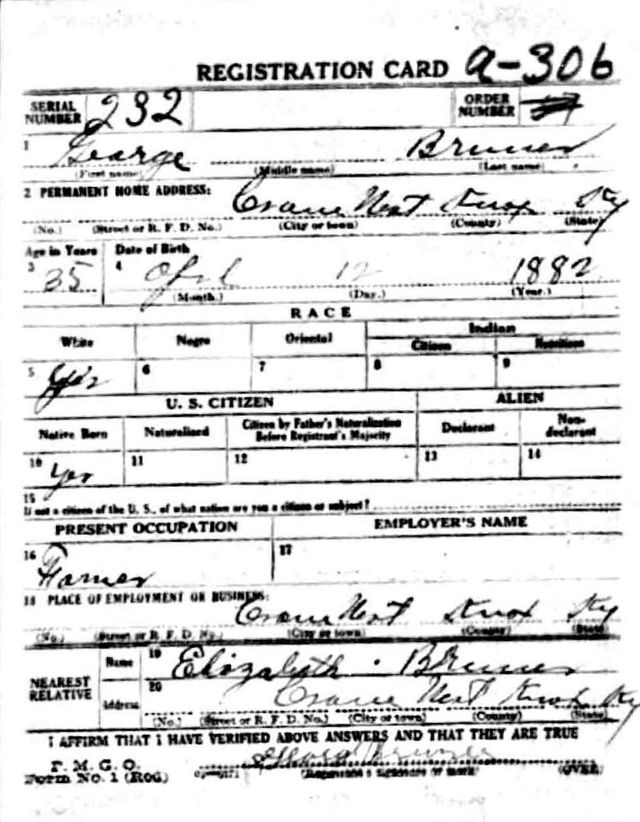 REGISTRATION CARD a-306
SERIAL NUMBER 232 ORDER NUMBER
1 George Bruner
(First name) (Middle name) (Last name)
2 PERMANENT HOME ADDRESS: Crane Nest Knox Ky
(No.) (Street or R. F. D. No.) (City or town) (County) (State)
Age in Years Date of Birth
3 35 4 12 1882
(Month.) (Day.) (Year.)
RACE
White Negro Oriental Indian
Citizen
5 Yes 6 7 8 9
U. S. CITIZEN ALIEN
Native Born Naturalized Citizen by Father's Naturalization Before Registrant's Majority Declarant Non-declarant
10 Yes 11 12 13 14
15
If not a citizen of the U. S., of what nation are you a citizen or subject?
PRESENT OCCUPATION EMPLOYER'S NAME
16 Farmer 17
18 PLACE OF EMPLOYMENT OR BUSINESS: Crane Nest Knox Ky
(No.) (Street or R. F. D. No.) (City or town) (County) (State)
NEAREST RELATIVE Name 19 Elizabeth Bruner
Address 20 Crane Nest Knox Ky
(No.) (Street or R. F. D. No.) (City or town) (County) (State)
I AFFIRM THAT I HAVE VERIFIED ABOVE ANSWERS AND THAT THEY ARE TRUE
P. M. G. O.
Form No. 1 (Red) (Registrant's signature or mark) (OVER)